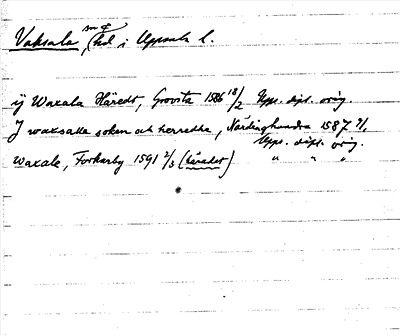 Vaksala sn o hd i Uppsala l.
ÿ Waxala Häredt, Grovsta 1586 18/2 Upps. dipl. orig.
J waxsalla soken och herredhe, Närdinghundra 1587 7/1 Upps. dipl. orig.
Waxale, Forkarby 1591 2/3 (häradet) " " "